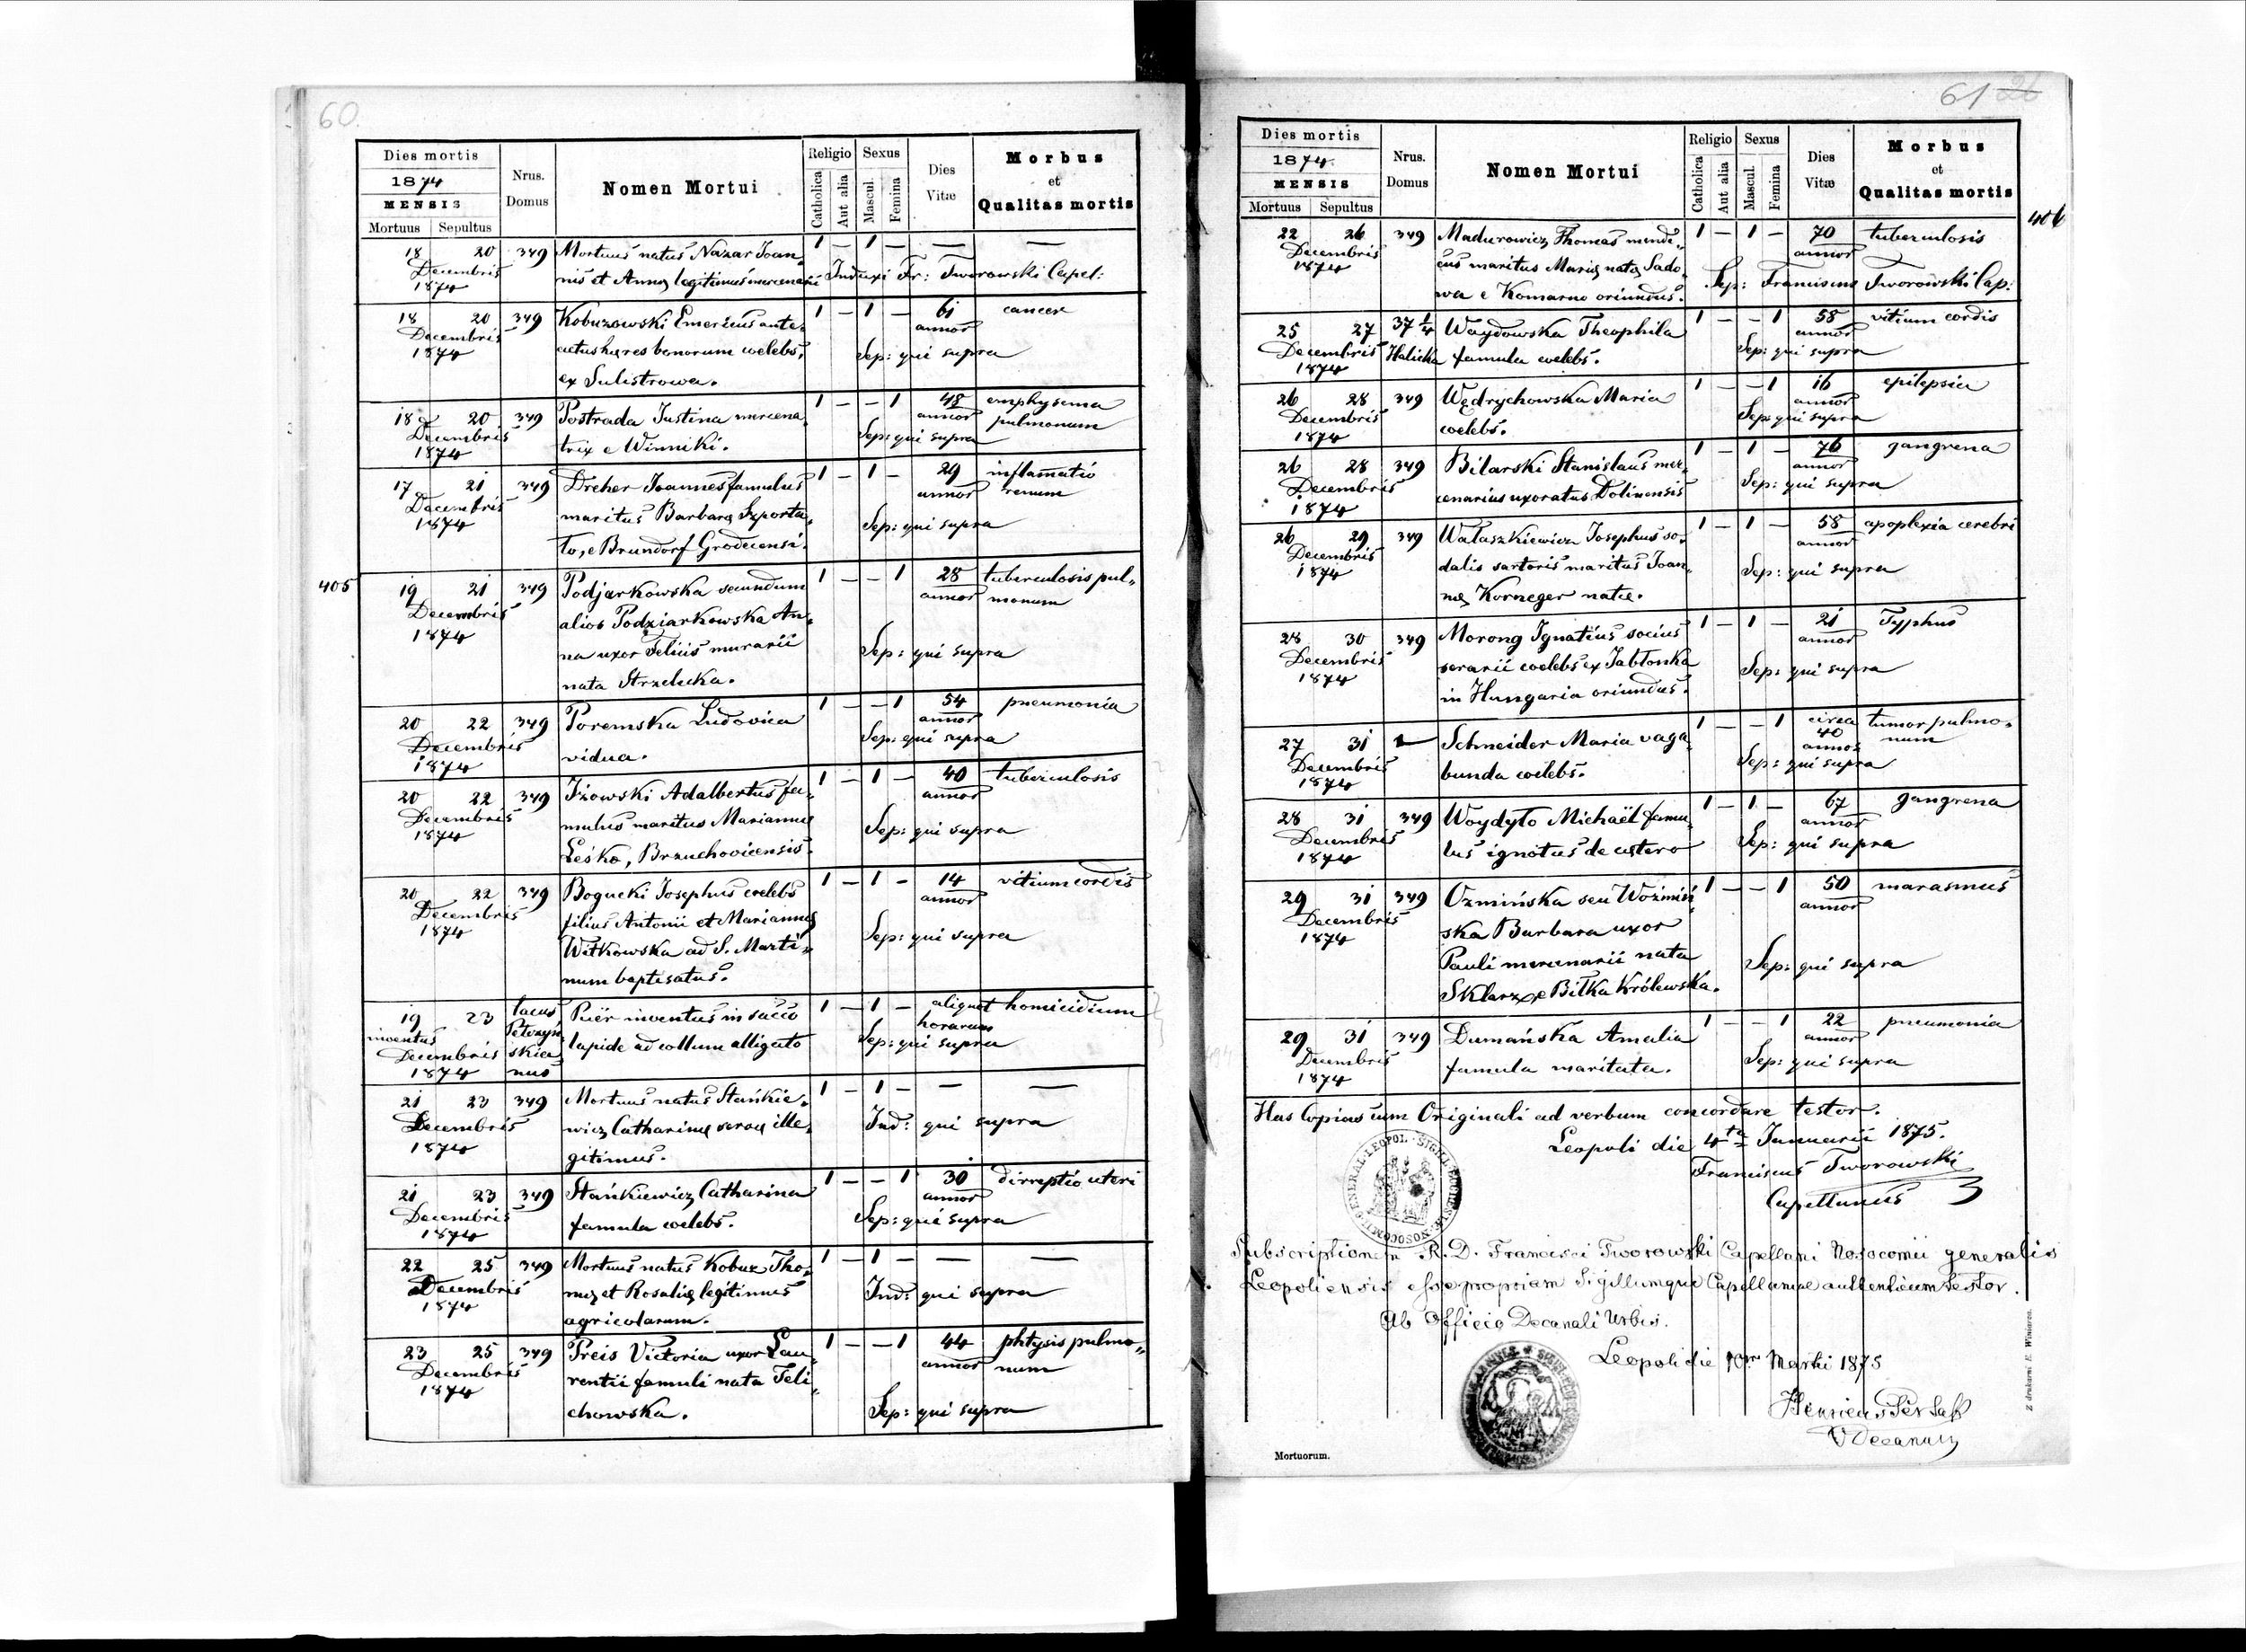 60.
Dies mortis
1874
MENSIS
Mortuus Sepultus
Nrus. Domus
Nomen Mortui
Religio
Catholica Aut alia
Sexus
Mascul. Femina
Dies Vitæ
Morbus et Qualitas mortis
18 20 349 Mortuus natus Nazar Joan- 1 — 1 — — —
Decembris nis et Annæ legitimus mercenarii Induxi Fr: Tworowski Capel:
1874
18 20 349 Kobuzowski Emericus ante- 1 — 1 — 61 cancer
Decembris actus hæres bonorum coelebs, annor
1874 ex Sulistrowa. Sep: qui supra
18 20 349 Postrada Justina mercena- 1 — — 1 48 emphysema
Decembris trix e Winniki. annor pulmonum
1874 Sep: qui supra
17 21 349 Dreher Joannes famulus 1 — 1 — 29 inflamatio
Decembris maritus Barbaræ annor renum
1874 to, e Brundorf Grodecensi. Sep: qui supra
405
19 21 349 Podjarkowska secundum 1 — — 1 28 tuberculosis pul-
Decembris alios Podziarkowska An- annor monum
1874 na uxor Felicis murarii Sep: qui supra
nata Strzelecka.
20 22 349 Poremska Ludovica 1 — — 1 54 pneumonia
Decembris vidua. annor
1874 Sep: qui supra
20 22 349 Iżowski Adalbertus fa- 1 — 1 — 40 tuberculosis
Decembris mulus maritus Mariannæ annor
1874 Leśko, Brzuchovicensis. Sep: qui supra
20 22 349 Bogucki Josephus coelebs 1 — 1 — 14 vitium cordis
Decembris filius Antonii et Mariannæ annor
1874 Witkowska ad S. Marti- Sep: qui supra
num baptisatus.
19 23 lacus Puër inventus in sacco 1 — 1 — aliquot homicidium
inventus Petczyń- lapide ad collum alligato horarum
Decembris skia- Sep: qui supra
1874 nus
21 23 349 Mortuus natus Stańkie- 1 — 1 — — —
Decembris wicz Catharinæ servæ ille- Ind: qui supra
1874 gitimus.
21 23 349 Stańkiewicz Catharina 1 — — 1 30 dirreptio uteri
Decembris famula coelebs. annor
1874 Sep: qui supra
22 25 349 Mortuus natus Kobuz Tho- 1 — 1 — — —
Decembris mæ et Rosaliæ legitimus Ind: qui supra
1874 agricolarum.
23 25 349 Preis Victoria uxor Lau- 1 — — 1 44 phtysis pulmo-
Decembris rentii famuli nata Feli- annor num
1874 chowska. Sep: qui supra
61 26
Dies mortis
1874.
MENSIS
Mortuus Sepultus
Nrus. Domus
Nomen Mortui
Religio
Catholica Aut alia
Sexus
Mascul. Femina
Dies Vitæ
Morbus et Qualitas mortis
406
22 26 349 Madurowicz Thomas mendi- 1 — 1 — 70 tuberculosis
Decembris cus maritus Mariæ natæ Sado- annor
1874 wa e Komarno oriundus. Sep: Franciscus Tworowski Cap:
25 27 37 1/4 Waydowska Theophila 1 — — 1 58 vitium cordis
Decembris Halicka famula coelebs. annor
1874 Sep: qui supra
26 28 349 Wędrychowska Maria 1 — — 1 16 epilepsia
Decembris coelebs. annor
1874 Sep: qui supra
26 28 349 Bilarski Stanislaus mer- 1 — 1 — 76 gangrena
Decembris cenarius uxoratus Dolinensis annor
1874 Sep: qui supra
26 29 349 Wałaszkiewicz Josephus so- 1 — 1 — 58 apoplexia cerebri
Decembris dalis sartoris maritus Joan- annor
1874 næ Korneger natæ. Sep: qui supra
28 30 349 Morong Ignatius socius 1 — 1 — 21 Typhus
Decembris serarii coelebs ex Jabłonka annor
1874 in Hungaria oriundus. Sep: qui supra
27 31 — Schneider Maria vaga- 1 — — 1 circa 40 tumor pulmo-
Decembris bunda coelebs. annor num
1874 Sep: qui supra
28 31 349 Woydyło Michaël famu- 1 — 1 — 67 gangrena
Decembris lus ignotus de cætero annor
1874 Sep: qui supra
29 31 349 Ozmińska seu Woźmiń- 1 — — 1 50 marasmus
Decembris ska Barbara uxor annor
1874 Pauli mercenarii nata Sep: qui supra
Sklarz e Biłka Królewska.
29 31 349 Dumańska Amalia 1 — — 1 22 pneumonia
Decembris famula maritata. annor
1874 Sep: qui supra
Has Copias cum Originali ad verbum concordare testor.
Leopoli die 4ta Januarii 1875.
Franciscus Tworowski
Capellanus
Subscriptionem R. D. Francisci Tworowski Capellani Nosocomii generalis
Leopoliensis esse propriam Sigillumque Capellaniae authenticum testor.
Ab Officio Decanali Urbis.
Leopoli die 10 Martii 1875
Henricus
VDecanus
Mortuorum.
Z drukarni E. Winiarza.